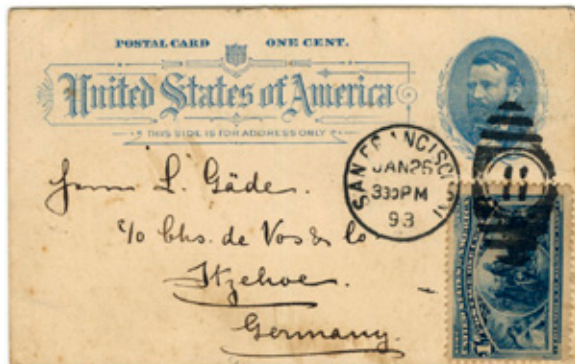 POSTAL CARD ONE CENT.
United States of America
THIS SIDE IS FOR ADDRESS ONLY
SAN FRANCISCO
JAN 26
330PM
93
11
Herrn L. Gäde.
c/o Chs. de Vos & Co
Itzehoe.
Germany.